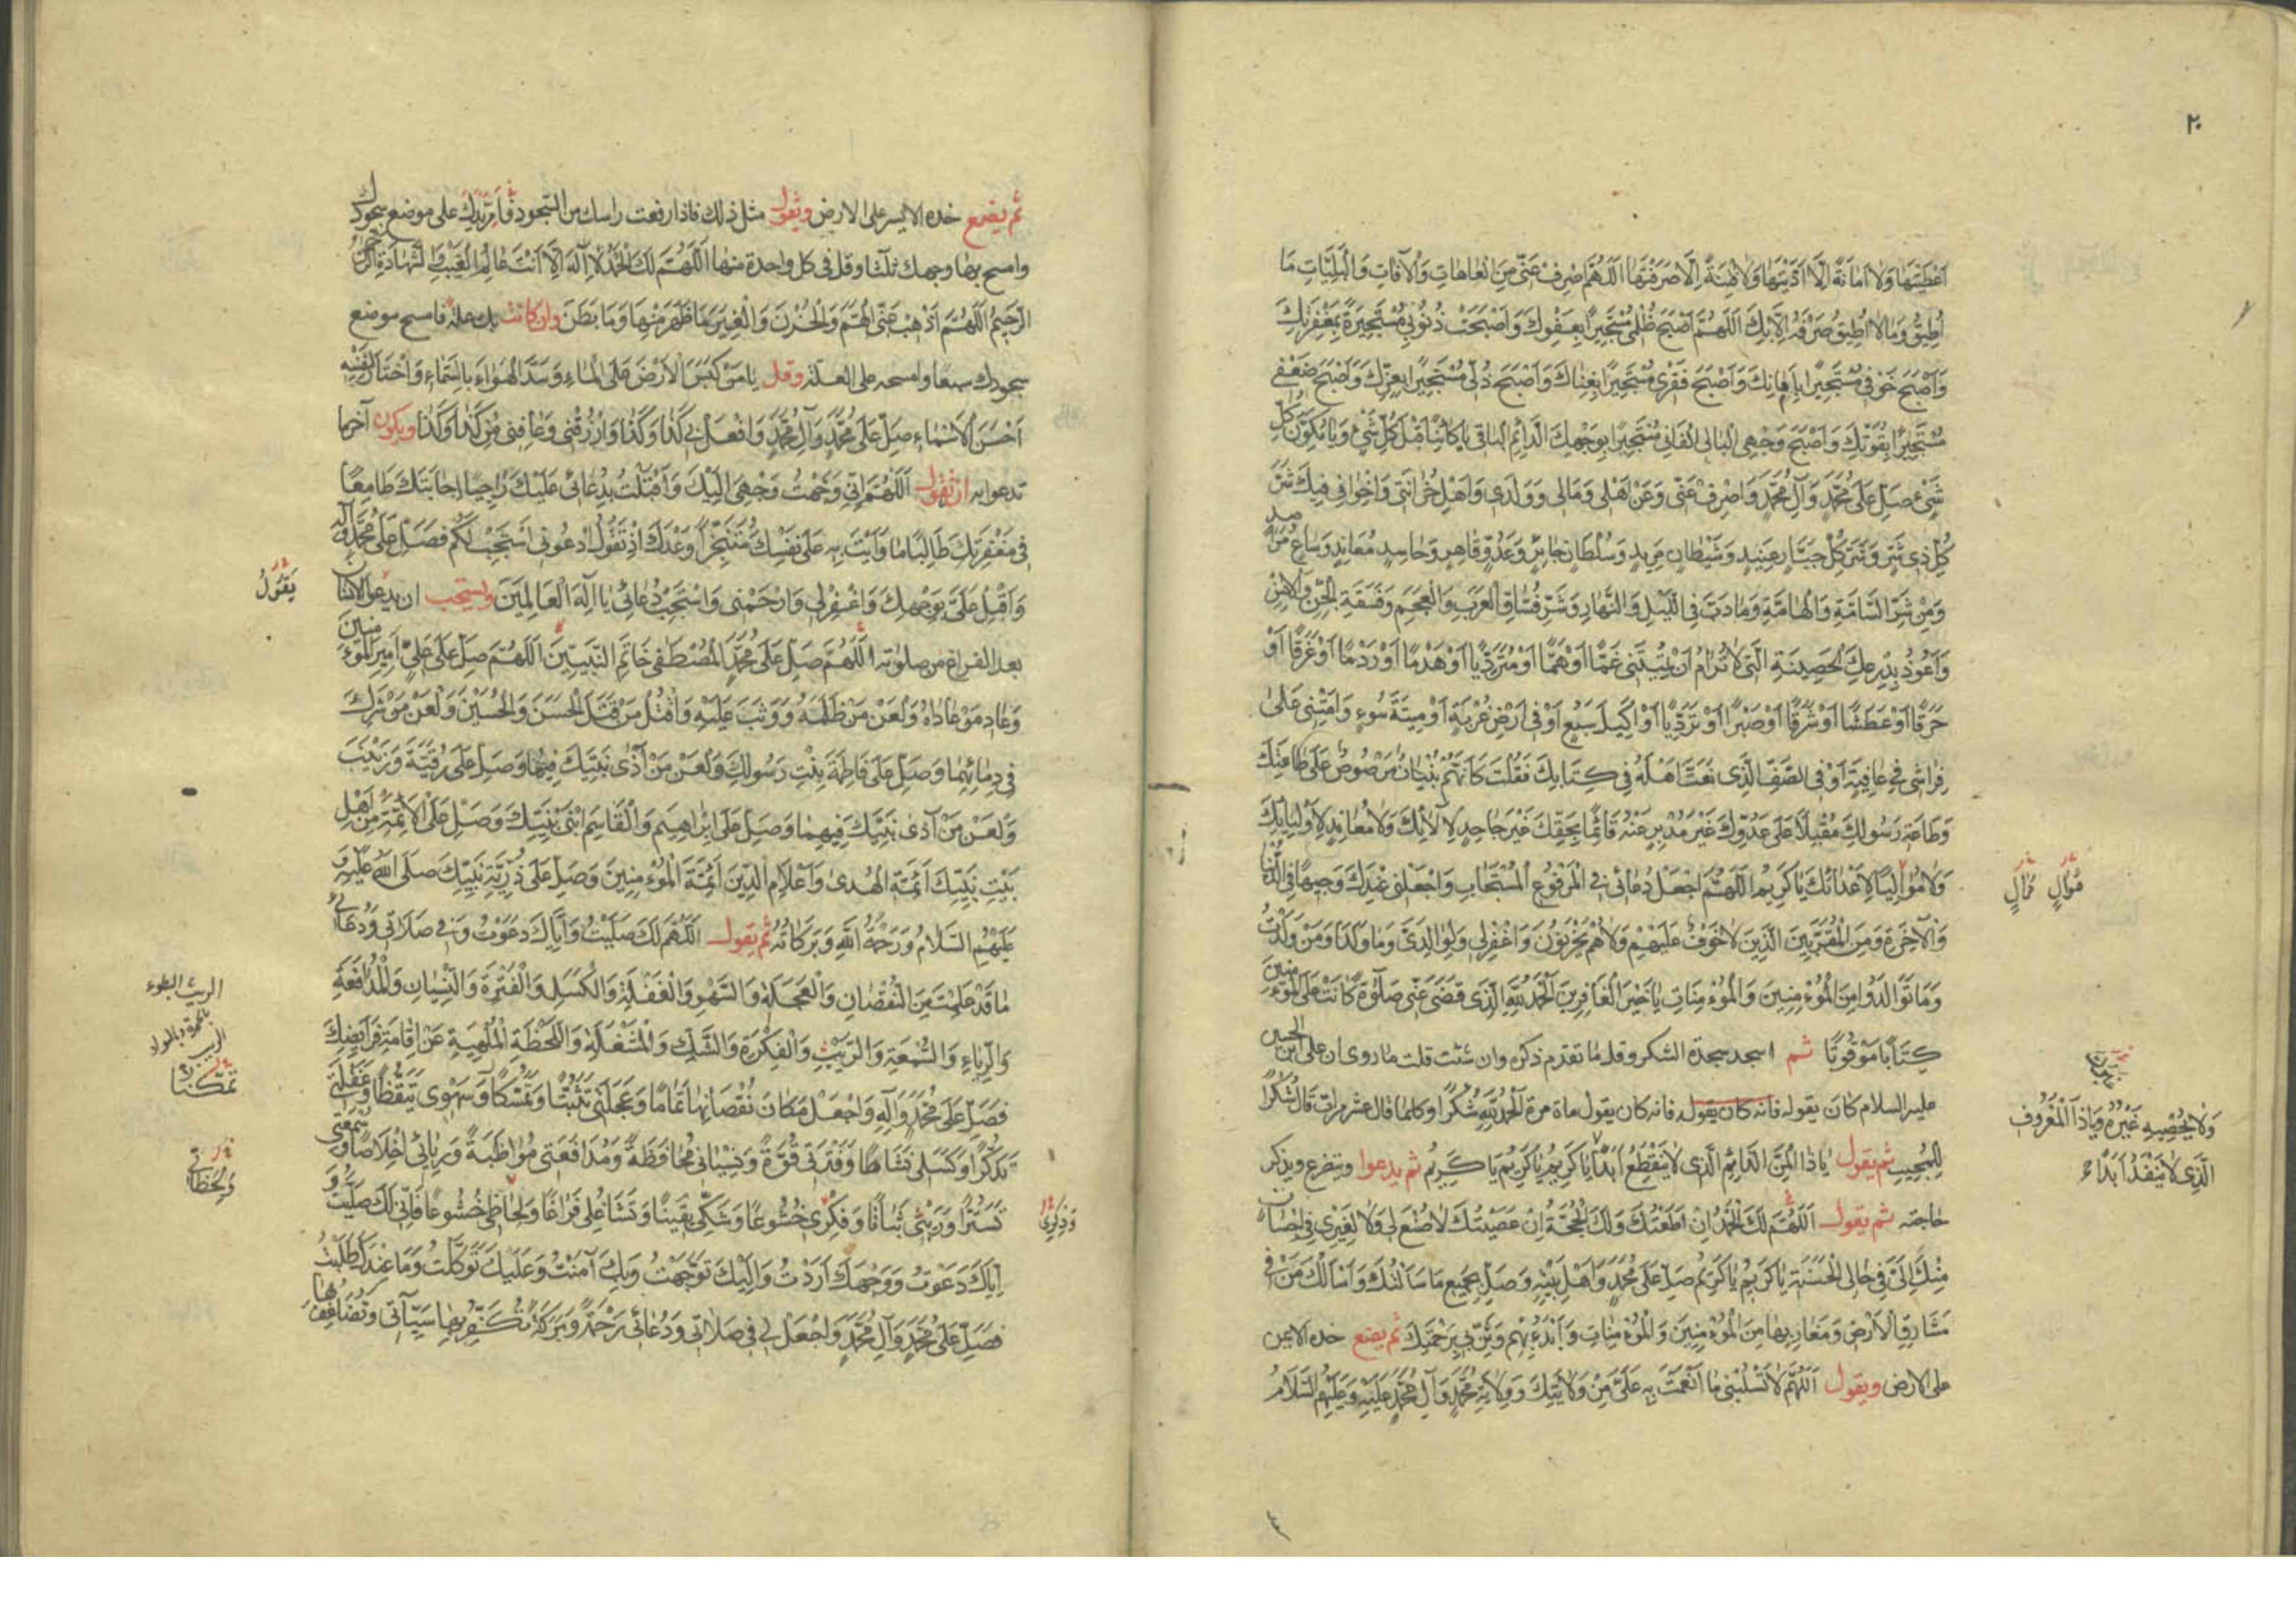 ٢٠
اَعْطَيْتَها وَلا اَمانَةً اِلّا اَدَّيْتَها وَلا فِتْنَةً اِلّا صَرَفْتَها اَللّهُمَّ اصْرِفْ عَنّى مِنَ الْعاهاتِ وَالْآفاتِ وَالْبَلِيّاتِ ما
اُطيقُ وَما لا اُطيقُ صَرْفَهُ اِلّا بِكَ اَللّهُمَّ اَصْبَحَ ظُلْمى مُسْتَجيرًا بِعَفْوِكَ وَاَصْبَحَتْ ذُنُوبى مُسْتَجيرَةً بِمَغْفِرَتِكَ
وَاَصْبَحَ خَوْفى مُسْتَجيرًا بِاَمانِكَ وَاَصْبَحَ فَقْرى مُسْتَجيرًا بِغِناكَ وَاَصْبَحَ ذُلّى مُسْتَجيرًا بِعِزِّكَ وَاَصْبَحَ ضَعْفى
مُسْتَجيرًا بِقُوَّتِكَ وَاَصْبَحَ وَجْهِىَ الْبالى الْفانى مُسْتَجيرًا بِوَجْهِكَ الدّائِمِ الْباقى يا كائِنًا قَبْلَ كُلِّ شَىْءٍ وَيا مُكَوِّنَ كُلِّ
شَىْءٍ صَلِّ عَلى مُحَمَّدٍ وَآلِ مُحَمَّدٍ وَاصْرِفْ عَنّى وَعَنْ اَهْلى وَمالى وَوَلَدى وَاَهْلِ حُزانَتى وَاِخْوانى فيكَ شَرَّ
كُلِّ ذى شَرٍّ وَشَرَّ كُلِّ جَبّارٍ عَنيدٍ وَشَيْطانٍ مَريدٍ وَسُلْطانٍ جائِرٍ وَعَدُوٍّ قاهِرٍ وَحاسِدٍ مُعانِدٍ وَباغٍ مُراصِدٍ
وَمِنْ شَرِّ السّامَّةِ وَالْهامَّةِ وَما دَبَّ فِى اللَّيْلِ وَالنَّهارِ وَشَرِّ فُسّاقِ الْعَرَبِ وَالْعَجَمِ وَفَسَقَةِ الْجِنِّ وَالْاِنْسِ
وَاَعُوذُ بِدِرْعِكَ الْحَصينَةِ الَّتى لا تُرامُ اَنْ تُميتَنى غَمًّا اَوْ هَمًّا اَوْ مُتَرَدِّيًا اَوْ هَدْمًا اَوْ رَدْمًا اَوْ غَرَقًا اَوْ
حَرَقًا اَوْ عَطَشًا اَوْ شَرَقًا اَوْ صَبْرًا اَوْ تَرَدِّيًا اَوْ اَكيلَ سَبُعٍ اَوْ فى اَرْضِ غُرْبَةٍ اَوْ ميتَةَ سُوءٍ وَاَمِتْنى عَلى
فِراشى فى عافِيَةٍ اَوْ فِى الصَّفِّ الَّذى نَعَتَّ اَهْلَهُ فى كِتابِكَ فَقُلْتَ كَاَنَّهُمْ بُنْيانٌ مَرْصُوصٌ عَلى طاعَتِكَ
وَطاعَةِ رَسُولِكَ مُقْبِلًا عَلى عَدُوِّكَ غَيْرَ مُدْبِرٍ عَنْهُ قائِمًا بِحَقِّكَ غَيْرَ جاحِدٍ لِآلائِكَ وَلا مُعانِدٍ لِاَوْلِيائِكَ
وَلا مُوالِيًا لِاَعْدائِكَ يا كَريمُ اَللّهُمَّ اجْعَلْ دُعائى فِى الْمَرْفُوعِ الْمُسْتَجابِ وَاجْعَلْنى عِنْدَكَ وَجيهًا فِى الدُّنْيا
مُوالٍ مُمالٍ
وَالْآخِرَةِ وَمِنَ الْمُقَرَّبينَ الَّذينَ لا خَوْفٌ عَلَيْهِمْ وَلا هُمْ يَحْزَنُونَ وَاغْفِرْ لى وَلِوالِدَىَّ وَما وَلَدا وَمَنْ وَلَدْتُ
وَما تَوالَدُوا مِنَ الْمُؤْمِنينَ وَالْمُؤْمِناتِ يا خَيْرَ الْغافِرينَ اَلْحَمْدُ لِلّهِ الَّذى قَضى عَنّى صَلٰوةً كانَتْ عَلَى الْمُؤْمِنينَ
كِتابًا مَوْقُوتًا ثم اسجد سجدة الشكر وقل ما تقدم ذكره وان شئت قلت ما روى ان على ابن الحسين
عليه السلام كان يقوله فانه كان يقول مأة مرة اَلْحَمْدُ لِلّهِ شُكْرًا وكلما قال عشر مرات قال شُكْرًا
لِلْمُجيبِ ثم يقول يا ذَا الْمَنِّ الدّائِمِ الَّذى لا يَنْقَطِعُ اَبَدًا يا كَريمُ يا كَريمُ يا كَريمُ ثم يدعوا ويتضرع ويذكر
وَلا يُحْصيهِ غَيْرُهُ وَيا ذَا الْمَعْرُوفِ
الَّذى لا يَنْفَدُ اَبَدًا
حاجته ثم يقول اَللّهُمَّ لَكَ الْحَمْدُ اِنْ اَطَعْتُكَ وَلَكَ الْحُجَّةُ اِنْ عَصَيْتُكَ لا صُنْعَ لى وَلا لِغَيْرى فى اِحْسانٍ
مِنْكَ اِلَىَّ فى حالى الْحَسَنَةِ يا كَريمُ يا كَريمُ صَلِّ عَلى مُحَمَّدٍ وَاَهْلِ بَيْتِهِ وَصِلْ بِجَميعِ ما سَاَلْتُكَ وَاَسْاَلُكَ مَنْ فى
مَشارِقِ الْاَرْضِ وَمَغارِبِها مِنَ الْمُؤْمِنينَ وَالْمُؤْمِناتِ وَابْدَءْ بِهِمْ وَثَنِّ بى بِرَحْمَتِكَ ثم يضع خده الايمن
على الارض ويقول اَللّهُمَّ لا تَسْلُبْنى ما اَنْعَمْتَ بِهِ عَلَىَّ مِنْ وَلايَتِكَ وَوِلايَةِ مُحَمَّدٍ وَآلِ مُحَمَّدٍ عَلَيْهِ وَعَلَيْهِمُ السَّلامُ
ثم يضع خده الايسر على الارض ويقول مثل ذلك فاذا رفعت راسك من السجود فَاَمِرَّ يدك على موضع سجودك
وامسح بها وجهك ثلثا وقل فى كل واحدة منها اَللّهُمَّ لَكَ الْحَمْدُ لا اِلهَ اِلّا اَنْتَ عالِمُ الْغَيْبِ وَالشَّهادَةِ الرَّحْمنُ
الرَّحيمُ اَللّهُمَّ اَذْهِبْ عَنِّى الْهَمَّ وَالْحُزْنَ وَالْغِيَرَ ما ظَهَرَ مِنْها وَما بَطَنَ وان كانت بك علة فامسح موضع
سجودك سبعًا وامسحه على العلة وقل يا مَنْ كَبَسَ الْاَرْضَ عَلَى الْماءِ وَسَدَّ الْهَواءَ بِالسَّماءِ وَاخْتارَ لِنَفْسِهِ
اَحْسَنَ الْاَسْماءِ صَلِّ عَلى مُحَمَّدٍ وَآلِ مُحَمَّدٍ وَافْعَلْ بى كَذا وَكَذا وَارْزُقْنى وَعافِنى مِنْ كَذا وَكَذا ويكون آخر ما
تدعوا به ان تقول اَللّهُمَّ اِنّى وَجَّهْتُ وَجْهى اِلَيْكَ وَاَقْبَلْتُ بِدُعائى عَلَيْكَ راجِيًا اِجابَتَكَ طامِعًا
فى مَغْفِرَتِكَ طالِبًا ما وَاَيْتَ بِهِ عَلى نَفْسِكَ مُتَنَجِّزًا وَعْدَكَ اِذْ تَقُولُ ادْعُونى اَسْتَجِبْ لَكُمْ فَصَلِّ عَلى مُحَمَّدٍ وَآلِهِ
وَاَقْبِلْ عَلَىَّ بِوَجْهِكَ وَاغْفِرْ لى وَارْحَمْنى وَاسْتَجِبْ دُعائى يا اِلهَ الْعالَمينَ ويستحب ان يدعو الانسان
يَقُولُ
بعد الفراغ من صلوته اَللّهُمَّ صَلِّ عَلى مُحَمَّدٍ الْمُصْطَفى خاتَمِ النَّبِيّينَ اَللّهُمَّ صَلِّ عَلى عَلِىٍّ اَميرِ الْمُؤْمِنينَ
وَعادِ مَنْ عاداهُ وَالْعَنْ مَنْ ظَلَمَهُ وَوَثَبَ عَلَيْهِ وَاقْتُلْ مَنْ قَتَلَ الْحَسَنَ وَالْحُسَيْنَ وَالْعَنْ مَنْ شَرِكَ
فى دِمائِهِما وَصَلِّ عَلى فاطِمَةَ بِنْتِ رَسُولِكَ وَالْعَنْ مَنْ آذى نَبِيَّكَ فيها وَصَلِّ عَلى رُقَيَّةَ وَزَيْنَبَ
وَالْعَنْ مَنْ آذى نَبِيَّكَ فيهِما وَصَلِّ عَلى اِبْراهيمَ وَالْقاسِمِ ابْنَىْ نَبِيِّكَ وَصَلِّ عَلَى الْاَئِمَّةِ مِنْ اَهْلِ
بَيْتِ نَبِيِّكَ اَئِمَّةِ الْهُدى وَاَعْلامِ الدّينِ اَئِمَّةِ الْمُؤْمِنينَ وَصَلِّ عَلى ذُرِّيَّةِ نَبِيِّكَ صَلَّى اللهُ عَلَيْهِ وَ
عَلَيْهِمُ السَّلامُ وَرَحْمَةُ اللّهِ وَبَرَكاتُهُ ثم يقول اَللّهُمَّ لَكَ صَلَّيْتُ وَاِيّاكَ دَعَوْتُ وَفى صَلاتى وَدُعائى
ما قَدْ عَلِمْتَ مِنَ النُّقْصانِ وَالْعَجَلَةِ وَالسَّهْوِ وَالْغَفْلَةِ وَالْكَسَلِ وَالْفَتْرَةِ وَالنِّسْيانِ وَالْمُدافَعَةِ
الريث البطوء
وَالرِّياءِ وَالسُّمْعَةِ وَالرَّيْثِ وَالْفِكْرَةِ وَالشَّكِّ وَالْمَشْغَلَةِ وَاللَّحْظَةِ الْمُلْهِيَةِ عَنْ اِقامَةِ فَرائِضِكَ
فَصَلِّ عَلى مُحَمَّدٍ وَآلِهِ وَاجْعَلْ مَكانَ نُقْصانِها تَمامًا وَعَجَلَتى تَثَبُّتًا وَتَمَسُّكًا وَسَهْوى تَيَقُّظًا وَغَفْلَتى
تَمَكُّنًا
تَذَكُّرًا وَكَسَلى نَشاطًا وَفَتْرَتى قُوَّةً وَنِسْيانى مُحافَظَةً وَمُدافَعَتى مُواظَبَةً وَرِيائى اِخْلاصًا وَسُمْعَتى
وَلَحَظاتى
تَسَتُّرًا وَرَيْثى ثَباتًا وَفِكْرى خُشُوعًا وَشَكّى يَقينًا وَتَشاغُلى فَراغًا وَلِحاظى خُشُوعًا فَاِنّى لَكَ صَلَّيْتُ وَ
وَذِكْرى
اِيّاكَ دَعَوْتُ وَوَجْهَكَ اَرَدْتُ وَاِلَيْكَ تَوَجَّهْتُ وَبِكَ آمَنْتُ وَعَلَيْكَ تَوَكَّلْتُ وَما عِنْدَكَ طَلَبْتُ
فَصَلِّ عَلى مُحَمَّدٍ وَآلِ مُحَمَّدٍ وَاجْعَلْ لى فى صَلاتى وَدُعائى رَحْمَةً وَبَرَكَةً تُكَفِّرُ بِها سَيِّآتى وَتُضاعِفُ بِها